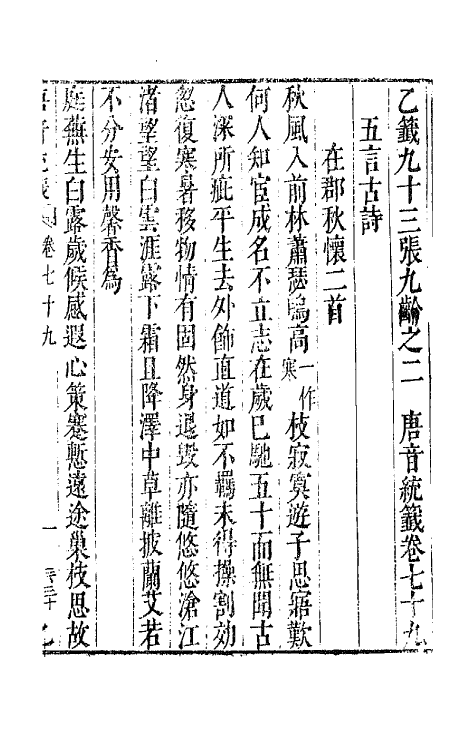 乙籤九十三張九齡之二　唐音統籤卷七十九
五言古詩
在郡秋懷二首
秋風入前林蕭瑟鳴高一作寒枝寂寞遊子思寤歎
何人知宦成名不立志在歲已馳五十而無聞古
人深所疵平生去外飾直道如不羈未得操割効
忽復寒暑移物情有固然身退毀亦隨悠悠滄江
渚望望白雲涯露下霜且降澤中草離披蘭艾若
不分安用馨香爲
庭蕪生白露歲候感遐心策蹇慙遠途巢枝思故
卷七十九　一